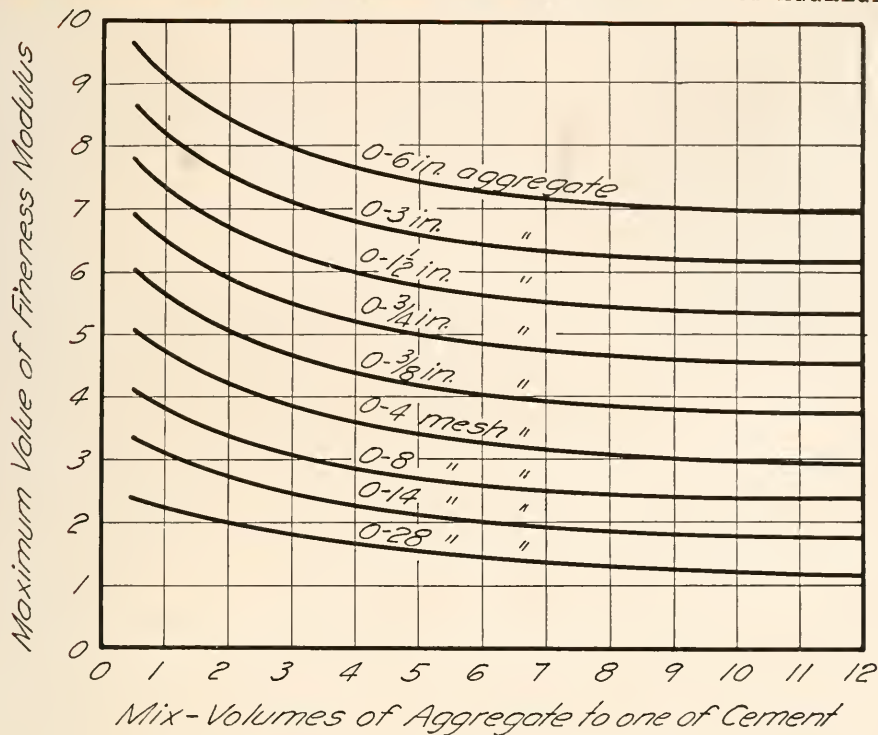 10
9
8
7
6
5
4
3
2
1
0
Maximum Value of Fineness Modulus
0-6 in. aggregate
0-3 in. "
0-1½ in. "
0-¾ in. "
0-⅜ in. "
0-4 mesh "
0-8 " "
0-14 " "
0-28 " "
0 1 2 3 4 5 6 7 8 9 10 11 12
Mix-Volumes of Aggregate to one of Cement